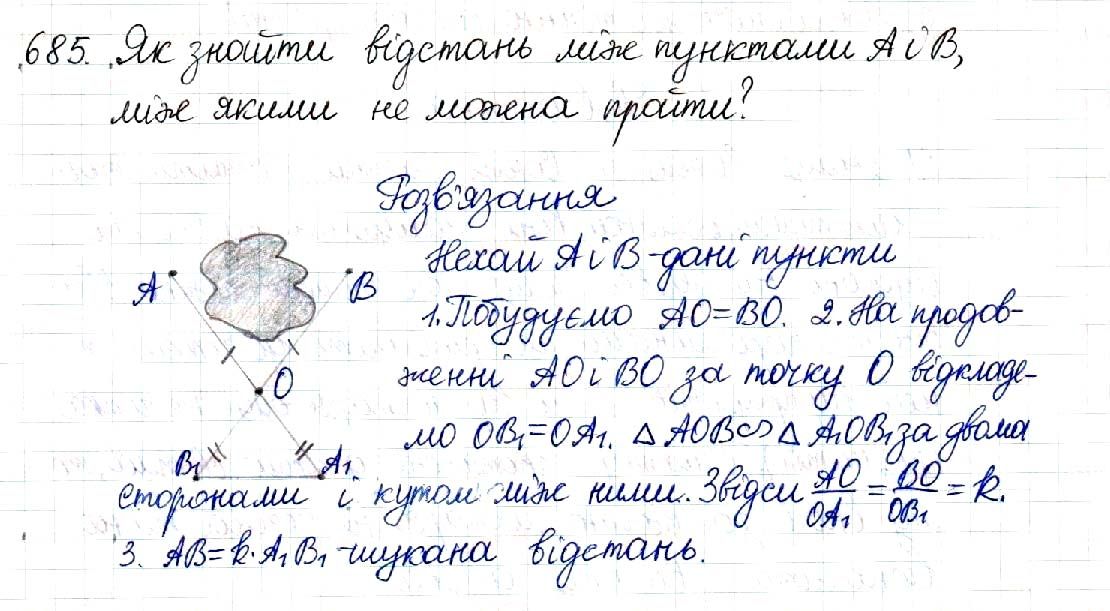 685. Як знайти відстань між пунктами А і В,
між якими не можна пройти?
Розв'язання
Нехай А і В - дані пункти
1. Побудуємо АО=ВО. 2. На продов-
женні АО і ВО за точку О відкладе-
мо ОВ₁=ОА₁. △ АОВ∽△ А₁ОВ₁ за двома
сторонами і кутом між ними. Звідси АО/ОА₁ = ВО/ОВ₁ = k.
3. АВ=k·А₁В₁ - шукана відстань.
А
В
О
В₁
А₁